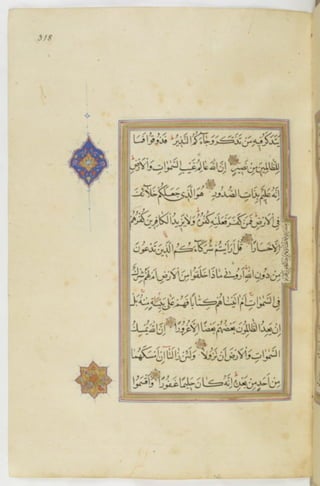 318
يَتَذَكَّرُ فِيهِ مَنْ تَذَكَّرَ وَجَاءَكُمُ النَّذِيرُ فَذُوقُوا فَمَا
لِلظَّالِمِينَ مِنْ نَصِيرٍ إِنَّ اللَّهَ عَالِمُ غَيْبِ السَّمَوَاتِ وَالْأَرْضِ
إِنَّهُ عَلِيمٌ بِذَاتِ الصُّدُورِ هُوَ الَّذِي جَعَلَكُمْ خَلَائِفَ
فِي الْأَرْضِ فَمَنْ كَفَرَ فَعَلَيْهِ كُفْرُهُ وَلَا يَزِيدُ الْكَافِرِينَ كُفْرُهُمْ
إِلَّا خَسَارًا قُلْ أَرَأَيْتُمْ شُرَكَاءَكُمُ الَّذِينَ تَدْعُونَ
مِنْ دُونِ اللَّهِ أَرُونِي مَاذَا خَلَقُوا مِنَ الْأَرْضِ أَمْ لَهُمْ شِرْكٌ
فِي السَّمَوَاتِ أَمْ آتَيْنَاهُمْ كِتَابًا فَهُمْ عَلَى بَيِّنَةٍ مِنْهُ بَلْ
إِنْ يَعِدُ الظَّالِمُونَ بَعْضُهُمْ بَعْضًا إِلَّا غُرُورًا إِنَّ اللَّهَ يُمْسِكُ
السَّمَوَاتِ وَالْأَرْضَ أَنْ تَزُولَا وَلَئِنْ زَالَتَا إِنْ أَمْسَكَهُمَا
مِنْ أَحَدٍ مِنْ بَعْدِهِ إِنَّهُ كَانَ حَلِيمًا غَفُورًا وَأَقْسَمُوا